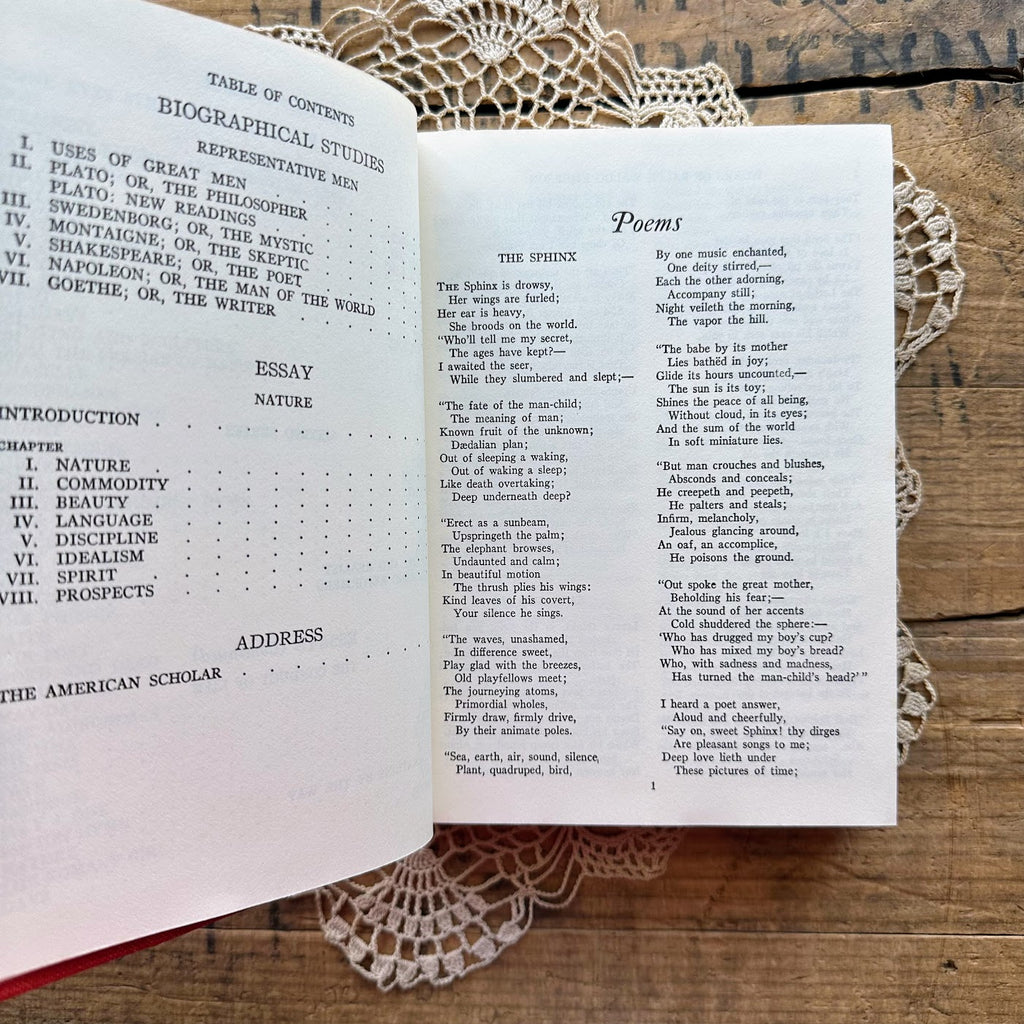 TABLE OF CONTENTS
BIOGRAPHICAL STUDIES
REPRESENTATIVE MEN
I. USES OF GREAT MEN
II. PLATO; OR, THE PHILOSOPHER
PLATO: NEW READINGS
III. SWEDENBORG; OR, THE MYSTIC
IV. MONTAIGNE; OR, THE SKEPTIC
V. SHAKESPEARE; OR, THE POET
VI. NAPOLEON; OR, THE MAN OF THE WORLD
VII. GOETHE; OR, THE WRITER
ESSAY
NATURE
INTRODUCTION
CHAPTER
I. NATURE
II. COMMODITY
III. BEAUTY
IV. LANGUAGE
V. DISCIPLINE
VI. IDEALISM
VII. SPIRIT
VIII. PROSPECTS
ADDRESS
THE AMERICAN SCHOLAR
Poems
THE SPHINX
THE Sphinx is drowsy,
Her wings are furled;
Her ear is heavy,
She broods on the world.
"Who'll tell me my secret,
The ages have kept?—
I awaited the seer,
While they slumbered and slept;—
"The fate of the man-child;
The meaning of man;
Known fruit of the unknown;
Dædalian plan;
Out of sleeping a waking,
Out of waking a sleep;
Like death overtaking;
Deep underneath deep?
"Erect as a sunbeam,
Upspringeth the palm;
The elephant browses,
Undaunted and calm;
In beautiful motion
The thrush plies his wings:
Kind leaves of his covert,
Your silence he sings.
"The waves, unashamed,
In difference sweet,
Play glad with the breezes,
Old playfellows meet;
The journeying atoms,
Primordial wholes,
Firmly draw, firmly drive,
By their animate poles.
"Sea, earth, air, sound, silence,
Plant, quadruped, bird,
By one music enchanted,
One deity stirred,—
Each the other adorning,
Accompany still;
Night veileth the morning,
The vapor the hill.
"The babe by its mother
Lies bathëd in joy;
Glide its hours uncounted,—
The sun is its toy;
Shines the peace of all being,
Without cloud, in its eyes;
And the sum of the world
In soft miniature lies.
"But man crouches and blushes,
Absconds and conceals;
He creepeth and peepeth,
He palters and steals;
Infirm, melancholy,
Jealous glancing around,
An oaf, an accomplice,
He poisons the ground.
"Out spoke the great mother,
Beholding his fear;—
At the sound of her accents
Cold shuddered the sphere:—
'Who has drugged my boy's cup?
Who has mixed my boy's bread?
Who, with sadness and madness,
Has turned the man-child's head?'"
I heard a poet answer,
Aloud and cheerfully,
"Say on, sweet Sphinx! thy dirges
Are pleasant songs to me;
Deep love lieth under
These pictures of time;
1